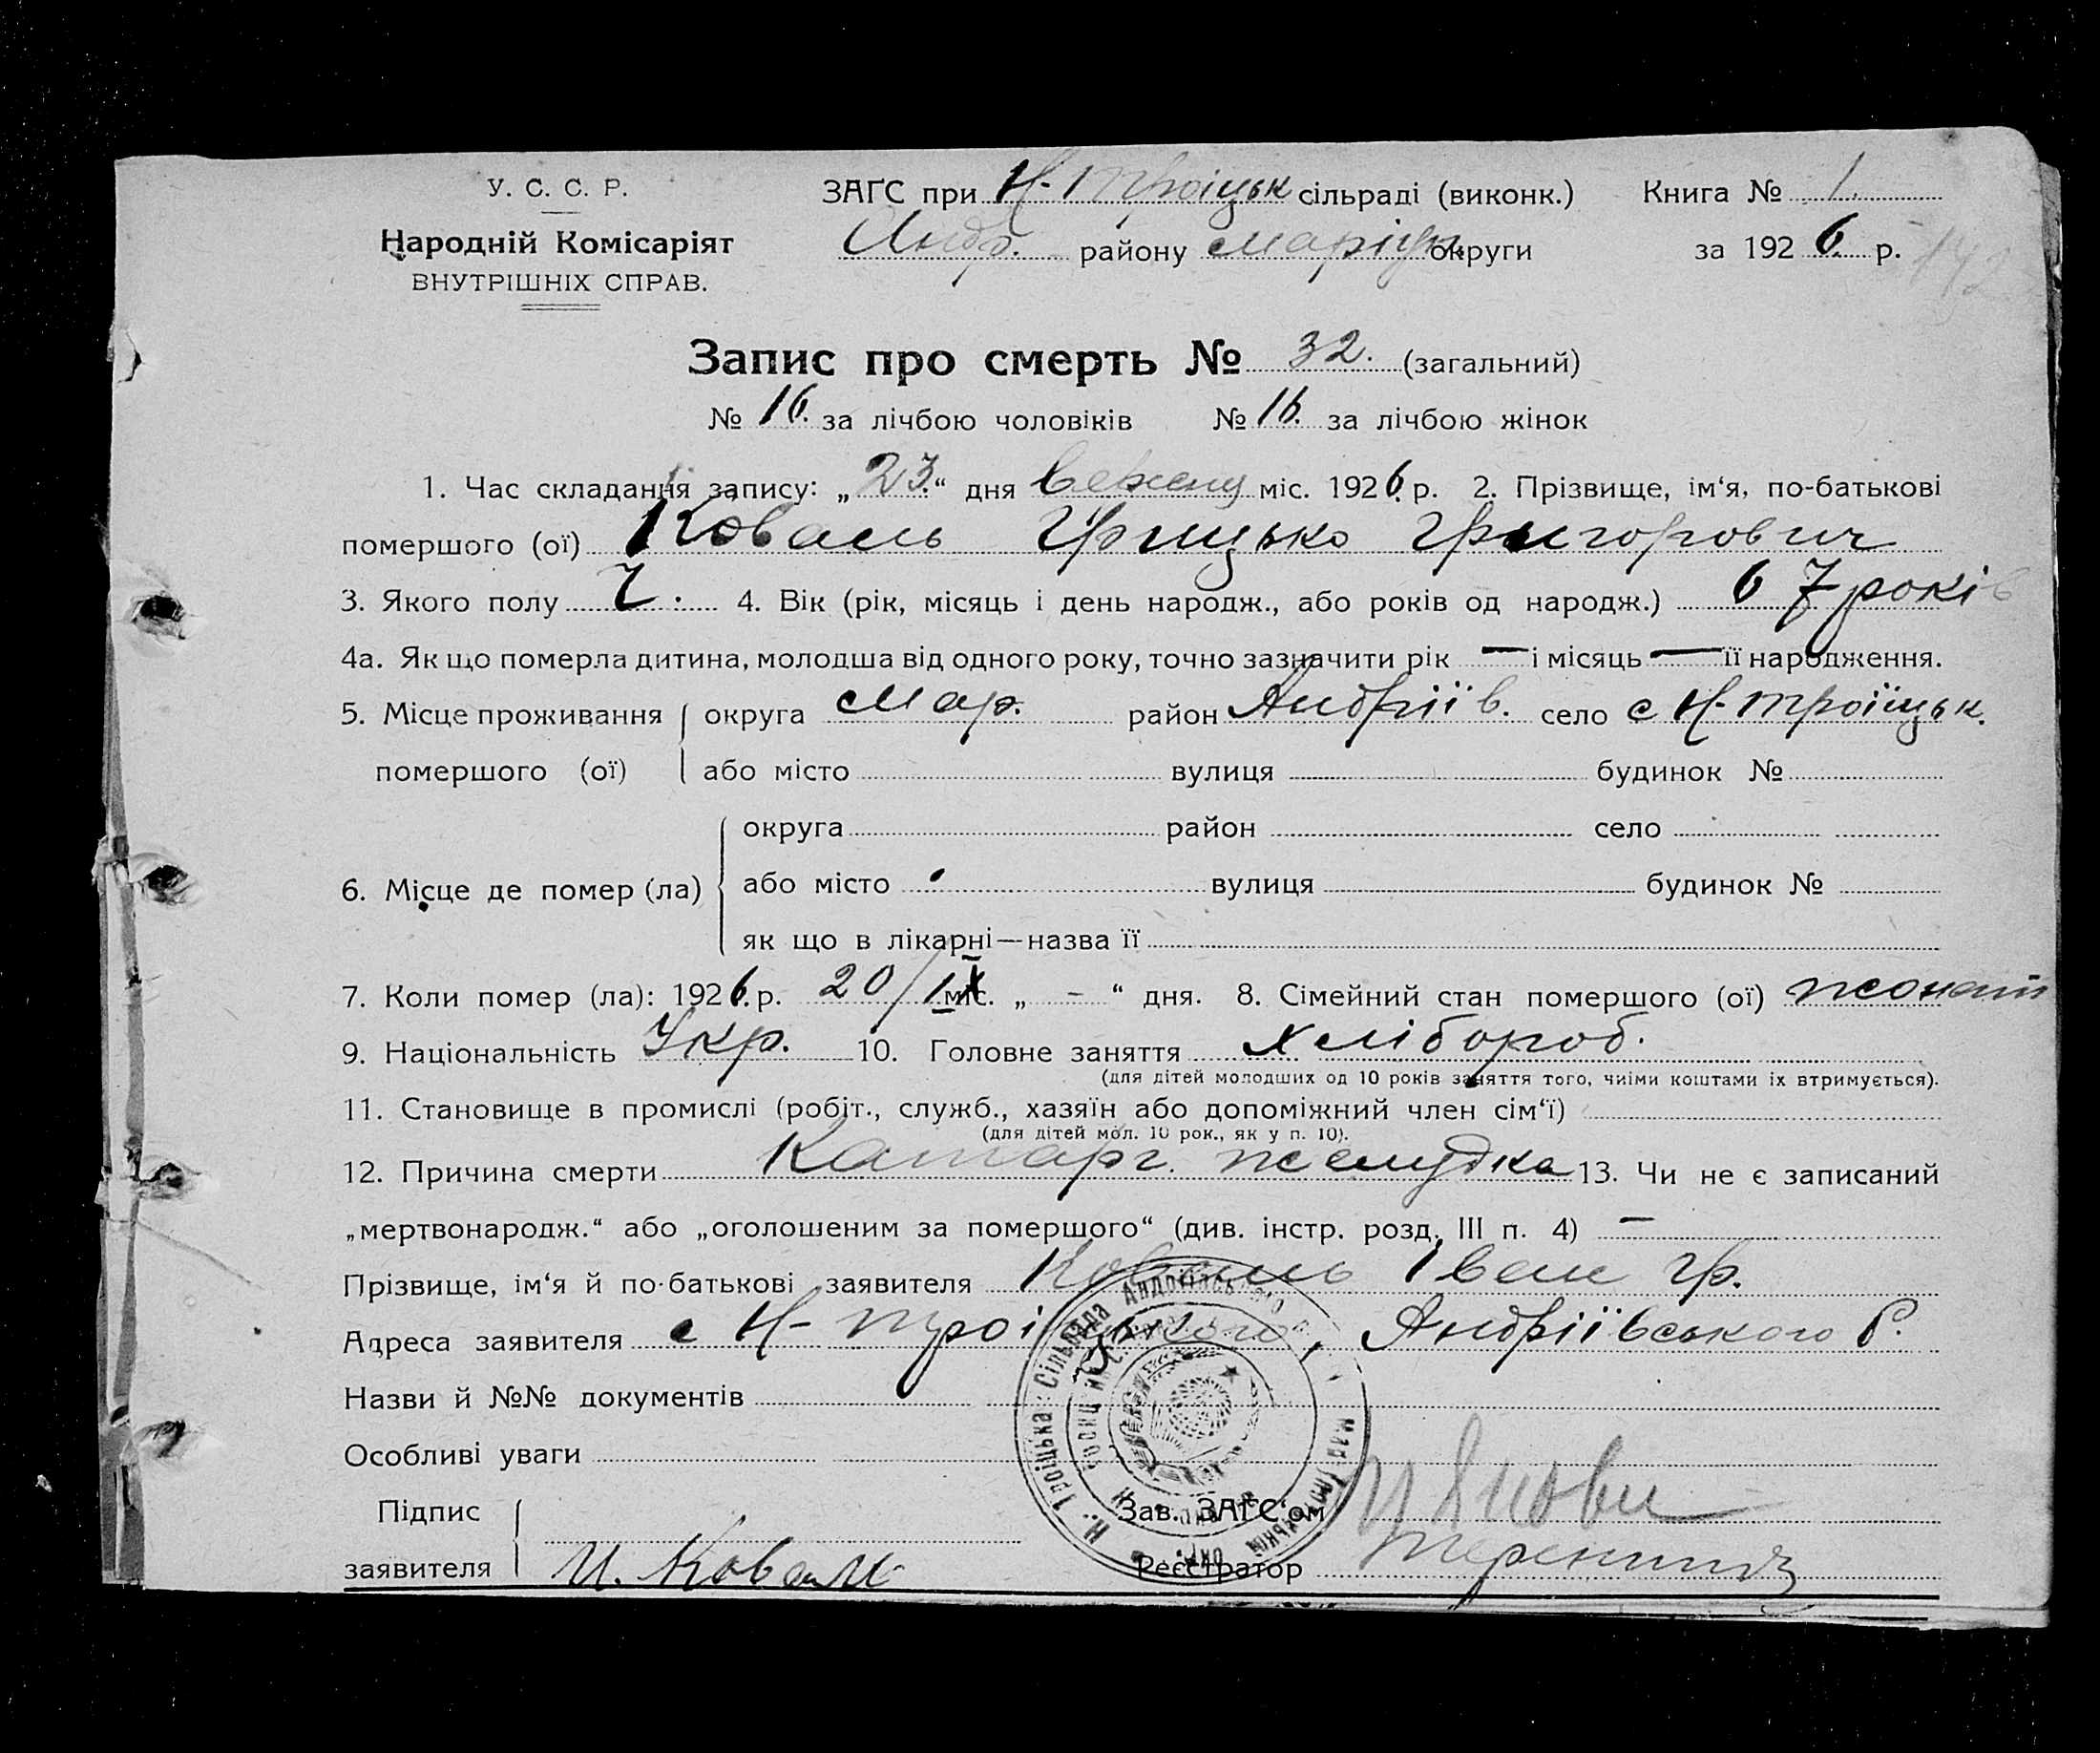 У. С. С. Р.
Народній Комісаріят
ВНУТРІШНІХ СПРАВ.
ЗАҐС при Н-Троіцьк сільраді (виконк.)
Андр. району Маріуп. округи
Книга № 1.
за 1926 р.
142
Запис про смерть № 32. (загальний)
№ 16. за лічбою чоловіків № 16. за лічбою жінок
1. Час складання запису: „23.“ дня вежену міс. 1926. р. 2. Прізвище, ім‘я, по-батькові
помершого (ої) Коваль Грицько Григорович
3. Якого полу Ч. 4. Вік (рік, місяць і день народж., або років од народж.) 67 років
4а. Як що померла дитина, молодша від одного року, точно зазначити рік — і місяць — її народження.
5. Місце проживання помершого (ої) округа Мар. район Андріїв. село с Н-Троїцьк.
або місто вулиця будинок №
6. Місце де помер (ла) округа район село
або місто вулиця будинок №
як що в лікарні—назва її
7. Коли помер (ла): 1926. р. 20/IX міс. „ - “ дня. 8. Сімейний стан помершого (ої) жонат
9. Національність Укр. 10. Головне заняття хлібороб.
(для дітей молодших од 10 років заняття того, чиіми коштами іх втримується).
11. Становище в промислі (робіт., служб., хазяїн або допоміжний член сім‘ї)
(для дітей мол. 10 рок., як у п. 10).
12. Причина смерти Катарг. желудка 13. Чи не є записаний
„мертвонародж.“ або „оголошеним за помершого“ (див. інстр. розд. III п. 4) —
Прізвище, ім‘я й по-батькові заявителя Коваль Іван Гр.
Адреса заявителя с Н-Троіцького, Андріївського Р.
Назви й №№ документів
Особливі уваги
Підпис заявителя И. Коваль
Зав. ЗАҐС‘ом
Реєстратор
Н. Троіцька Сільрада Андріівського